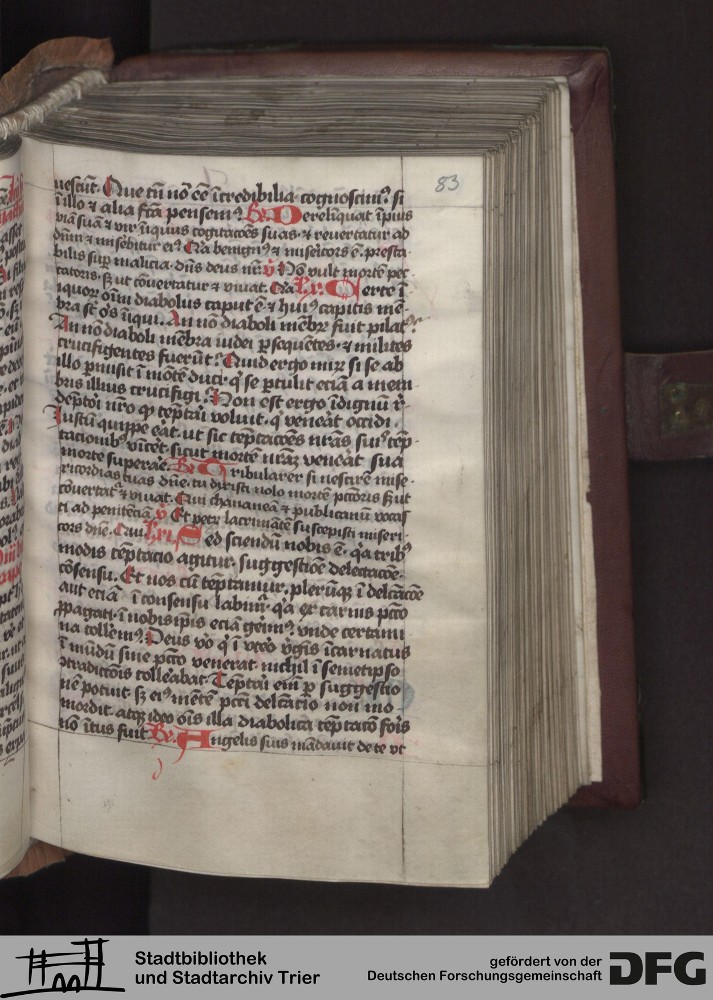 83
uescūt. Que tn̄ nō eē īcredibilia cognoscim⁹ si
ī illo ⁊ alia fcā pensem⁹ Rx. Derelinquat īpius
viā suā ⁊ vir īiquus cogitacōes suas ⁊ reuertatur ad
dūm ⁊ misebitur ei⁹ Qͥa benign⁹ ⁊ misericors ē. presta-
bilis suꝑ malicia. dūs deus nr̄. ꝟ Nō vult mortē pec
catoris. sꝫ ut cōuertatur ⁊ viuat. Qͥa Certe ī
iquoꝝ oīm diabolus caput ē ⁊ hui⁹ capitis mē-
bra st̄ oēs īiqui. An nō diaboli mēbꝝ fuit pilat⁹
An nō diaboli mēbra iudei ꝑsequētes ⁊ milites
crucifigentes fuerūt? Quid ergo miꝝ si se ab
illo ꝑmisit ī mōtē duci qͥ se ꝑtulit eciā a mem
bris illius crucifigi? Non est ergo īdignū r̄-
dēptoi nr̄o qͩ tēptāi voluit. qͥ venēat occidi.
Iustū quippe eat. ut sic tēptacōēs nr̄as sui⁹ tēp-
tacionib⁹ vīcēt. sicut mortē nrāꝫ venēat sua
morte superāe. Rx. Tribularer si nescirē mise-
ricordias tuas dūe. tu dixisti nolo mortē pctōris sꝫ ut
cōuertat᷑ ⁊ viuat. Qui chananeā ⁊ publicanū vocas
ti ad penitēciā ꝟ Et petꝝ lacrimātē suscepisti miseri-
cors dūe. Qui Sed sciendū nobis ē. qͥa trib⁹
modis tēptacio agitur. suggestiōe delectacōe
cōsensu. Et nos cū tēptamur. plerūqꝫ ī delcācōe
aut eciā ī consensu labimr᷑. qͥa ex carnis pctō
ꝓpagati. ī nobisipis eciā geim⁹. vnde certami
na tollem⁹. Deus v̄o qͥ ī vtēo v̄gīs īcarnatus
ī mūdū sine pctō venerat. nichil ī semetipso
ꝯtradictōis tolleabat. Tēptāi eim̄ ꝑ suggestio
nē potuit. sꝫ ei⁹ mētē pccī delcācio non mo
mordit. atqꝫ ideo oīs illa diabolica tēptacō foīs
nō ītus fuit Rx. Angelis suis mādauit de te vt
Stadtbibliothek
und Stadtarchiv Trier
gefördert von der
Deutschen Forschungsgemeinschaft
DFG